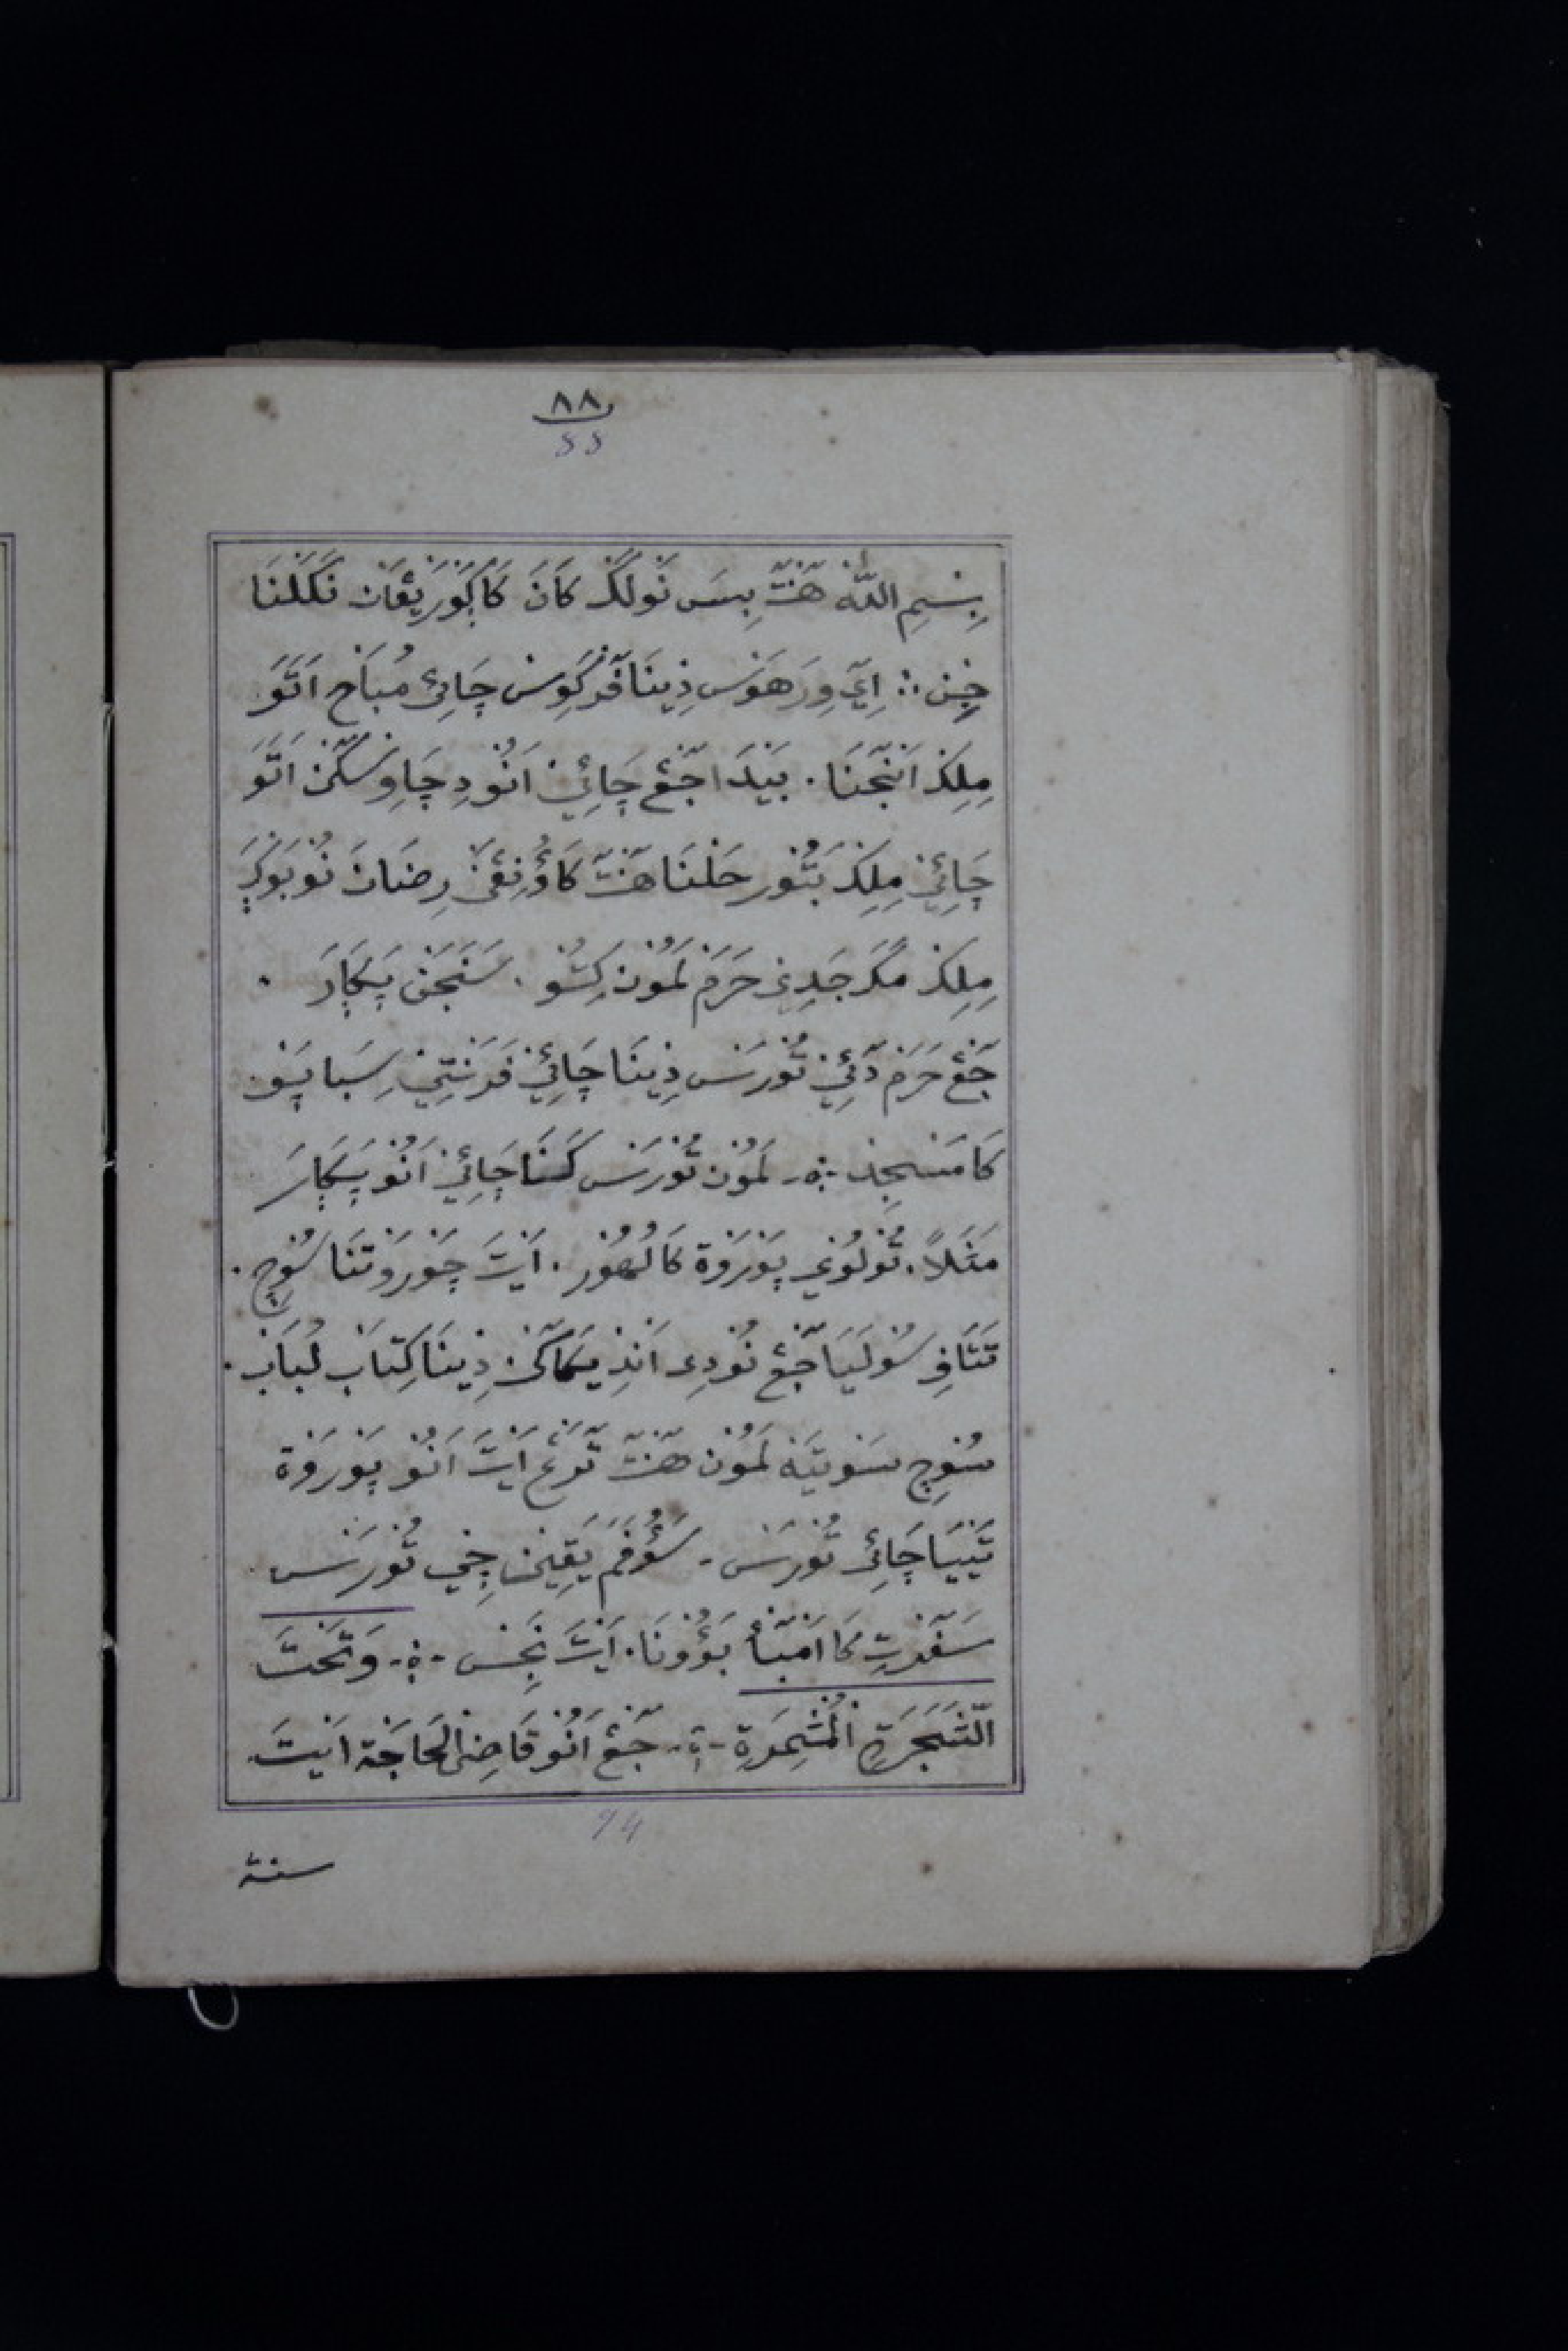 ٨٨
بِسْمِ اللّٰه هَنْتَّ بِسَ نَولَكَدْ كَانَ كَاكَوزَرَيڠَانْ نَكَلْنَا
جِنْ ؞ اِيَى وِرَهَوْسْ دِينَا فَرْكَوِسْ چَائِ مُبَاحْ اَتَوَ
مِلِكْدْ اَنْجَّنَا. بَيْدَا جَّڠْ چَائِيْ اَنُوْدِ چَاوِسَكَّنْ اَتَوَ
چَائِيْ مِلِكَدْ بَتُوْرْ حَلْنَا هَنْتَّ كَاؤُنِڠَنْ رِضَانَ نُوْبَوْڮَ
مِلِكْدْ مَڮَرْ جَدِيْ حَرَمْ لَمُوْنْ كِتُوْ. سَنَجَنْ پَكَاڔَ .
جَّڠْ حَرَمْ دَئِيْ تُوْرَنْسْ دِينَا چَائِيْ فَرَنْتِيْ سِبَا پَوْ
كَا مَسْجِدْ -؞- لَمُوْنْ تُوْرَنْسْ كَنَا چَائِيْ اَنُوْ پَكَاڔَ
مَثَلًا. تُوْلُوْيْ پَوْرَوْة كَالُهُوْرْ. اَيْتَ چَوْرَوْتَنَا سُوْچِ.
تَتَافِ سُوْلَيَا جَّڠْ نُوْدِ اَنْدِيْكَاكَنْ دِينَا كِتَابْ لُبَابْ.
سُوْچِ سَوْتِيَهْ لَمُوْنْ هَنْتَّ تَرَڠْ اَيْتَ اَنُوْ پَوْرَوْة
تِيْبَيَا چَائِ تُوْرَنْسْ - سَؤُفَمَ يَقِيْنْ چِيْ تُوْرَنْسْ
سَفَرْتِ كَا اَمْبَنْأ بَؤُوْنَا. اَيْتَ نَجِسْ -؞- وَتَحْتَ
الشَّجَرَةِ الْمُثْمِرَةِ -؞- جَّڠْ اَنُوْ قَاضِىْ الْحَاجَة اَيْتَ
94
سنة